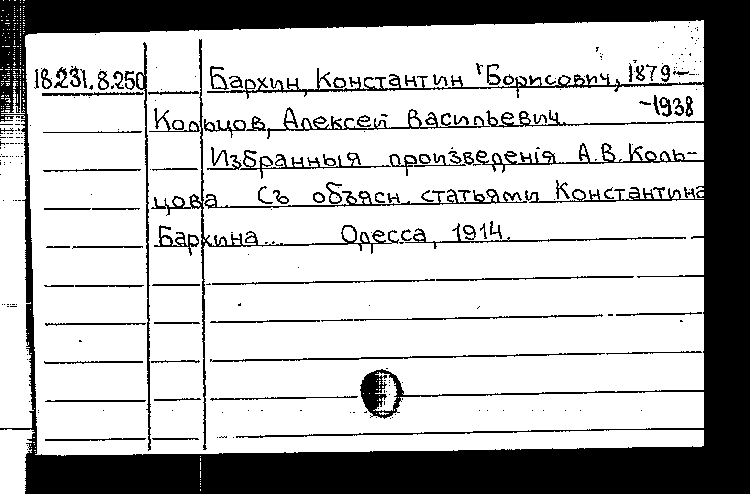 18.231.8.250 Бархин, Константин Борисович, 1879-
-1938
Кольцов, Алексей Васильевич.
Избранныя произведенія А.В. Коль-
цова... Съ объясн. статьями Константина
Бархина... Одесса, 1914.